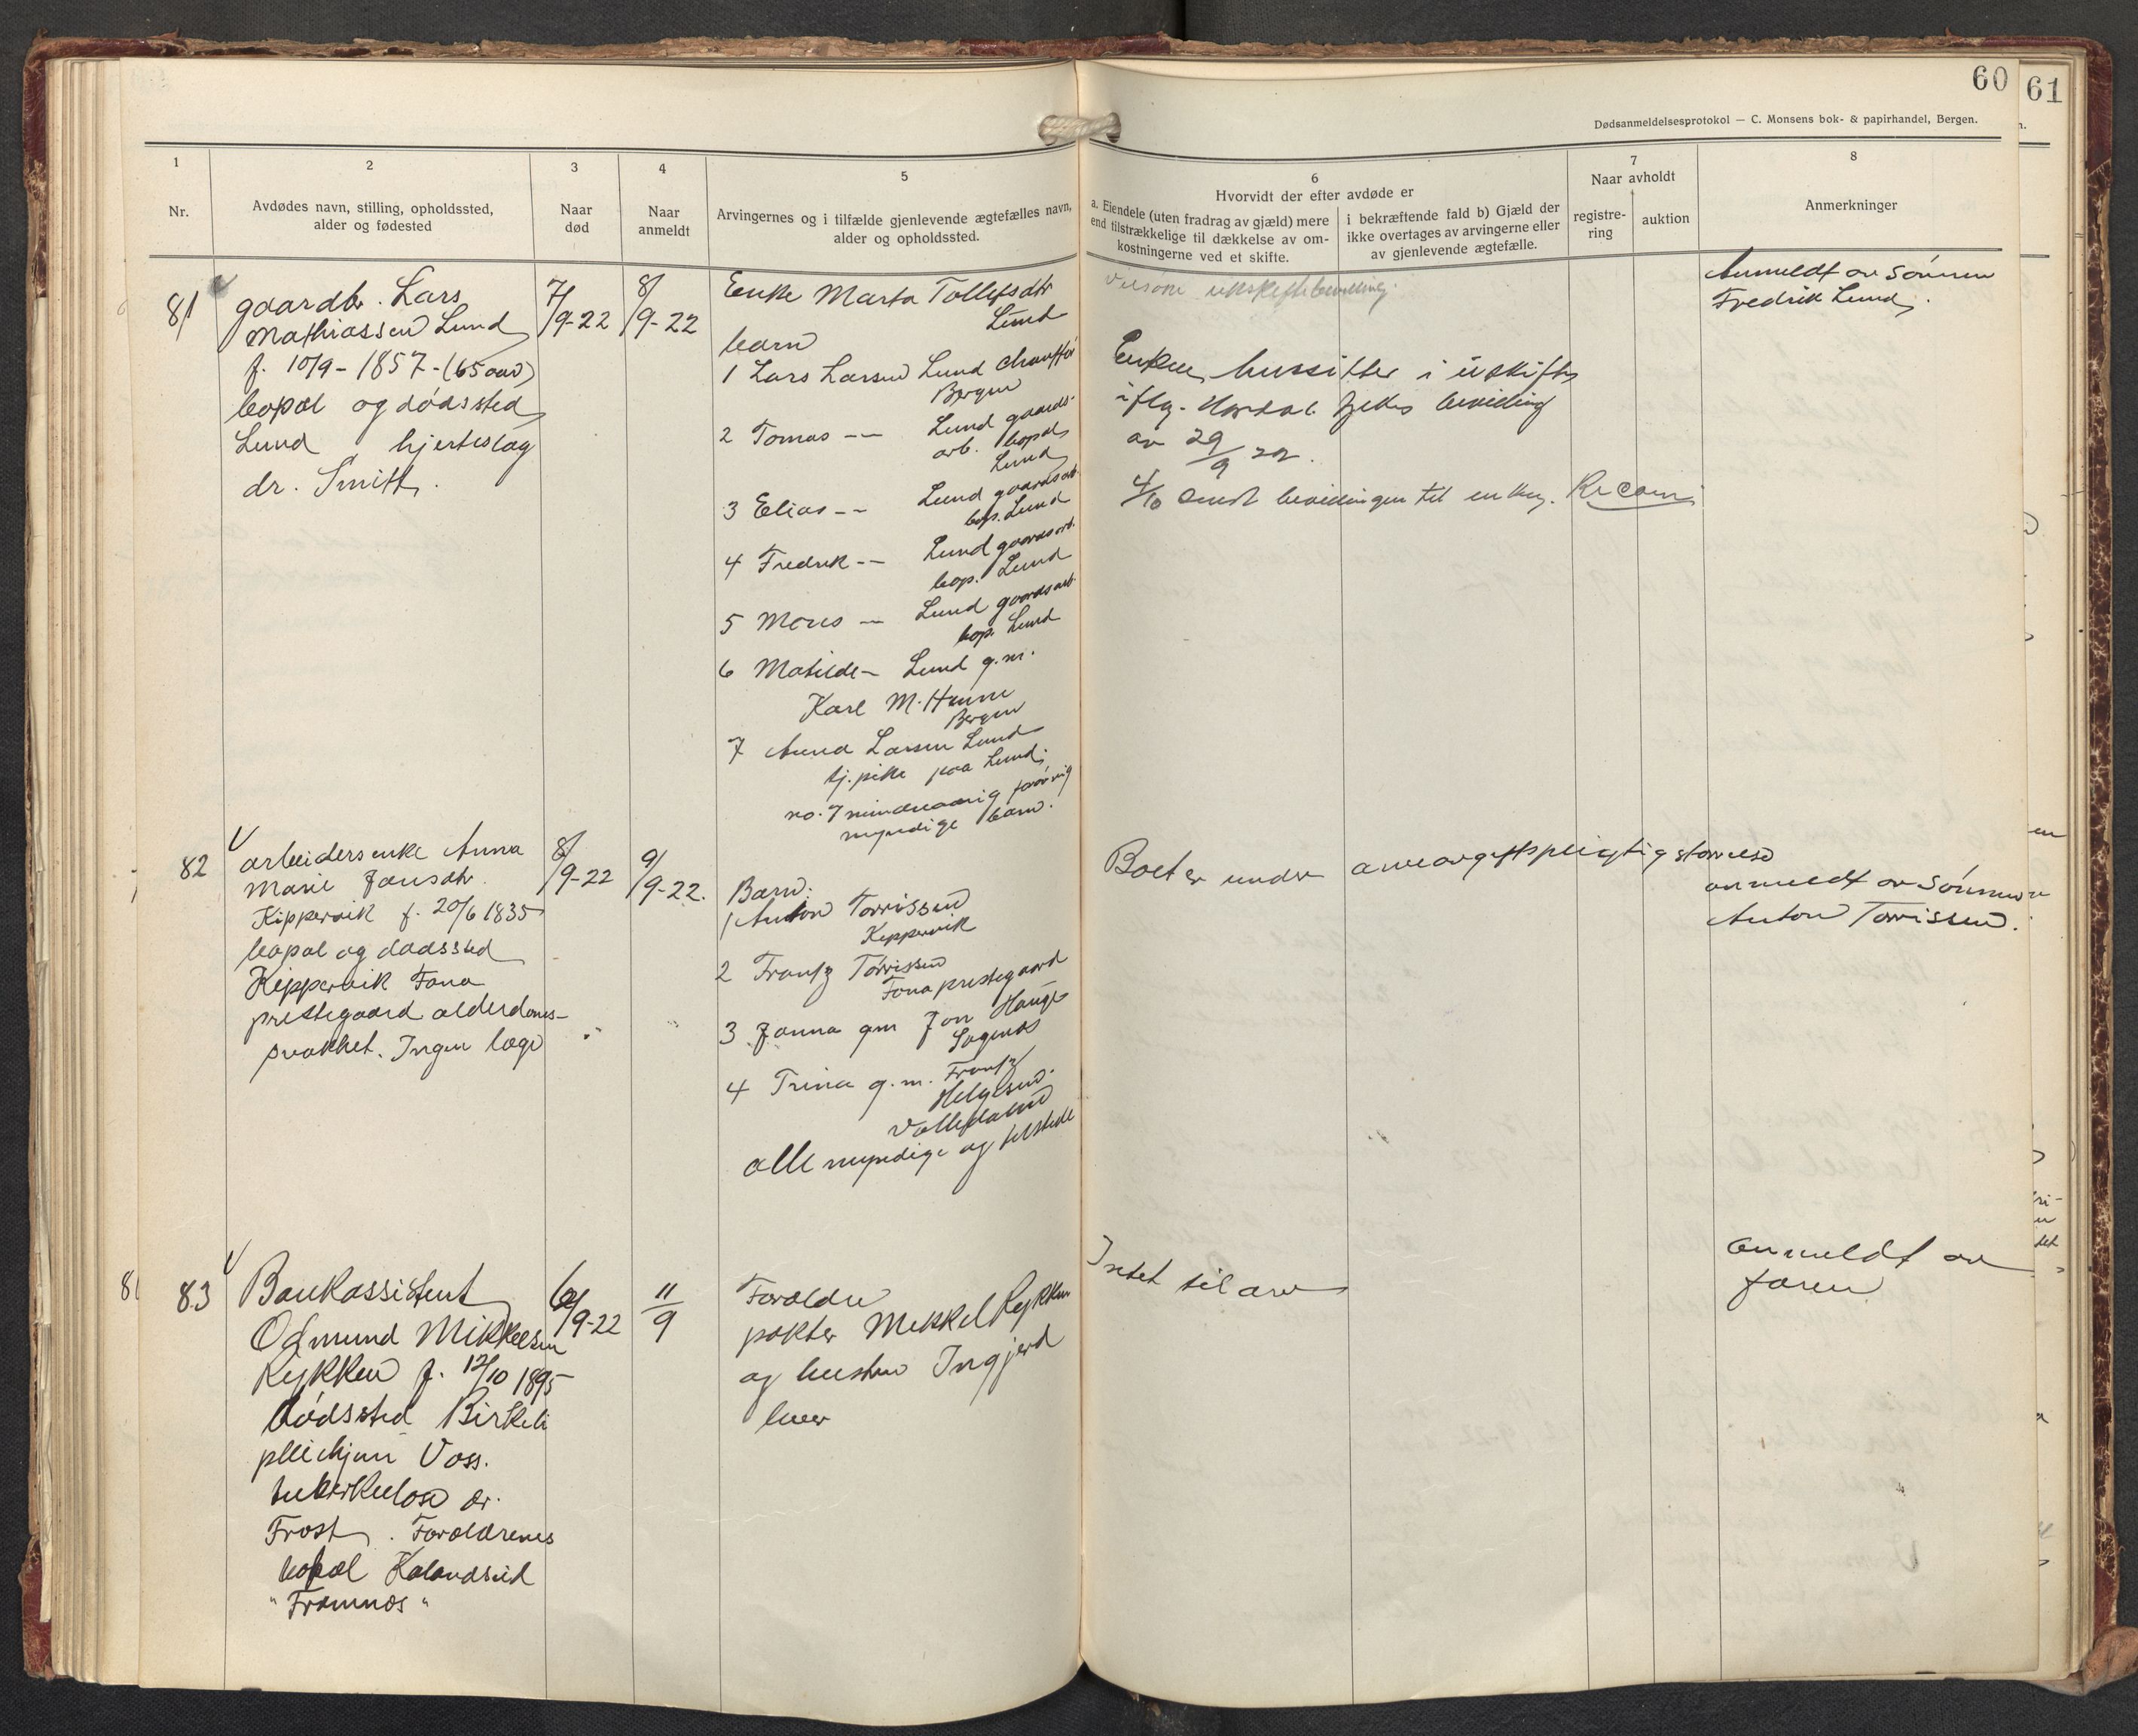 60
61
Dødsanmeldelsesprotokol — C. Monsens bok- & papirhandel, Bergen.
1
2
3
4
5
6
7
8
Nr.
Avdødes navn, stilling, opholdssted,
alder og fødested
Naar
død
Naar
anmeldt
Arvingernes og i tilfælde gjenlevende ægtefælles navn,
alder og opholdssted.
Hvorvidt der efter avdøde er
a. Eiendele (uten fradrag av gjæld) mere
end tilstrækkelige til dækkelse av om-
kostningerne ved et skifte.
i bekræftende fald b) Gjæld der
ikke overtages av arvingerne eller
av gjenlevende ægtefælle.
Naar avholdt
registre-
ring
auktion
Anmerkninger
81
gaardbr. Lars
Mathiassen Lund
f. 10/9 - 1857 - (65 aar)
bopæl og dødssted
Lund hjerteslag
dr. Smitt.
7/9-22
8/9-22
Enke Marta Tollefsdtr
Lund
barn
1 Lars Larsen Lund chauffør
Bergen
2 Tomas -- Lund gaards-
arb. bopæl
Lund
3 Elias -- Lund gaardsarb.
bop. Lund
4 Fredrik -- Lund gaardsarb.
bop. Lund
5 Mons -- Lund gaardsarb.
bop. Lund
6 Matilde - Lund g.m.
Karl M. Hanne
Bergen
7 Anna Larsen Lund
tj. pike paa Lund.
no. 7 mindreaarig forøvrig
myndige barn.
uskiftebevilling.
Enken hussitter i uskifte
iflg. Hordal. fylkes bevilling
av 29/9 22.
4/10 sendt bevilingen til enken.
Anmeldt av sønnen
Fredrik Lund.
82
arbeidersenke Anna
Marie Jansdtr.
Kippervik f. 20/6 1835
bopæl og dødssted
Kippervik Fana
prestegaard alderdoms-
svakhet. Ingen læge
8/9-22
9/9-22.
Barn:
1 Anton Torrissen
Kippervik
2 Frantz Tørrissen
Fana prestegaard
3 Janna gm Jon Hauge
4 Trina g.m. Frantz
Helgesen.
alle myndige og tilstede
Boet er under arveavgiftspligtig størrelse
anmeldt av Sønnen
Anton Torrissen.
83
Bankassistent
Odmund Mikkelsen
Rykken f. 12/10 1895
Dødssted Birkeli
pleiehjem Voss.
tuberkulose dr.
Frost. Forældrenes
bopæl Kalandseid
"Framnæs"
6/9-22
11/9
Forældre
pakter Mikkel Rykken
og hustru Ingjerd
lever
Intet til arv
anmeldt av
faren